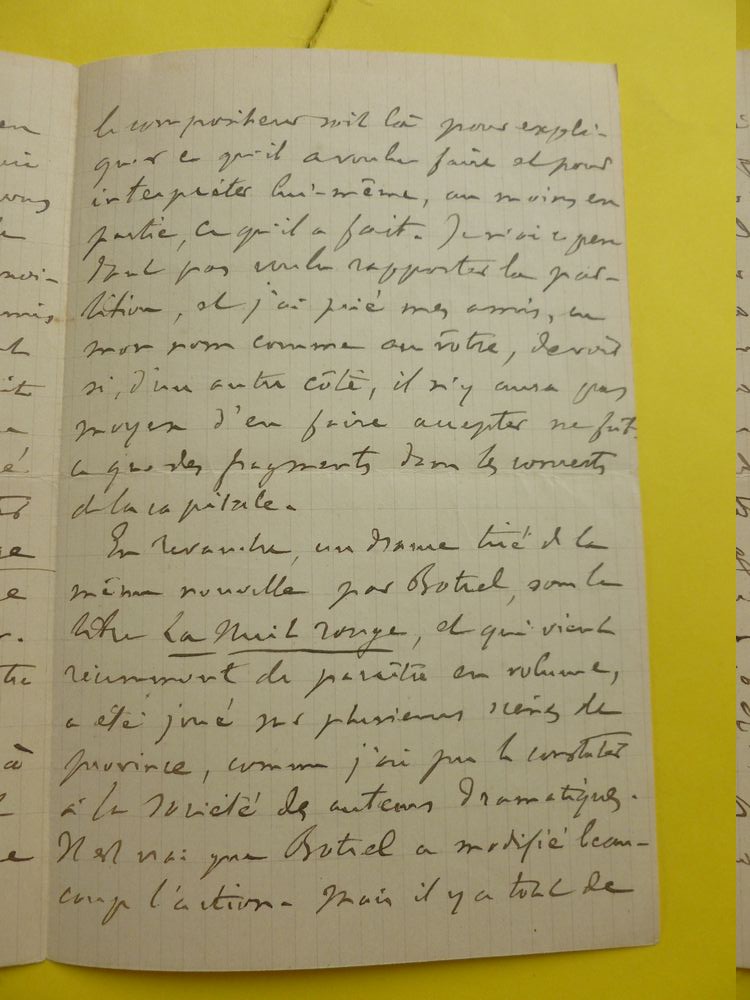 en
le compositeur soit là pour expli-
quer ce qu'il a voulu faire et pour
interpréter lui-même, au moins en
partie, ce qu'il a fait. Je n'ai cepen
dant pas voulu rapporter la par-
tition, et j'ai prié mes amis, en
mon nom comme au vôtre, de voir
si, d'un autre côté, il n'y aura pas
moyen d'en faire accepter ne fut-
ce que des fragments dans les concerts
de la capitale.
En revanche, un drame tiré de la
même nouvelle par Botrel, sous le
titre La Nuit rouge, et qui vient
récemment de paraître en volume,
a été joué sur plusieurs scènes de
province, comme j'ai pu le constater
à la Société des auteurs dramatiques.
Il est vrai que Botrel a modifié beau-
coup l'action. Mais il y a tout de